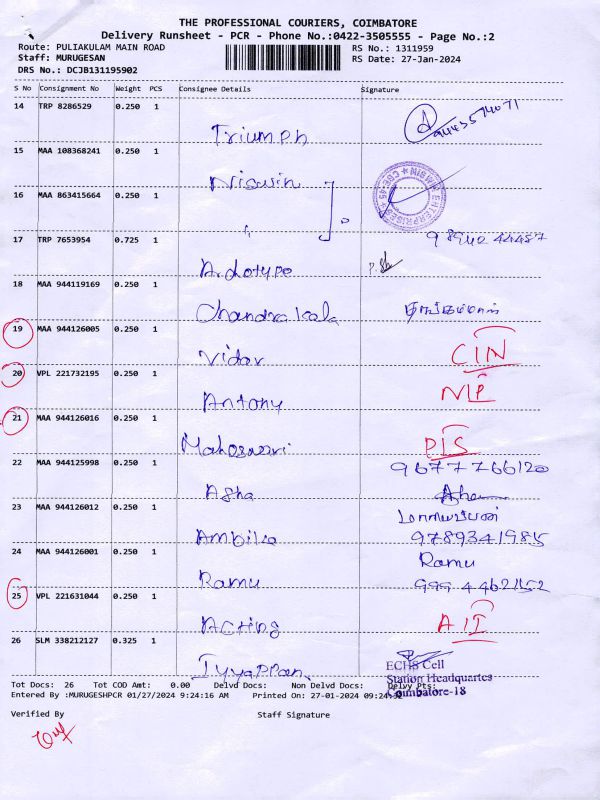 THE PROFESSIONAL COURIERS, COIMBATORE
Delivery Runsheet - PCR - Phone No.:0422-3505555 - Page No.:2
Route: PULIAKULAM MAIN ROAD
RS No.: 1311959
Staff: MURUGESAN
RS Date: 27-Jan-2024
DRS No.: DCJB131195902
S No Consignment No Weight PCS Consignee Details Signature
14 TRP 8286529 0.250 1
Triumph
15 MAA 108368241 0.250 1
Niswin
16 MAA 863415664 0.250 1
ENTERPRISES
17 TRP 7653954 0.725 1
98942 44487
Archotype
18 MAA 944119169 0.250 1
Chandrakala
19 MAA 944126005 0.250 1
Vidav CIN
20 VPL 221732195 0.250 1
Antony NLP
21 MAA 944126016 0.250 1
PLS
22 MAA 944125998 0.250 1
9677766120
Asha
23 MAA 944126012 0.250 1
Ambika 9789341985
24 MAA 944126001 0.250 1
Ramu
Ramu
25 VPL 221631044 0.250 1
Acting AIT
26 SLM 338212127 0.325 1
Iyyappan
ECHS Cell
Station Headquartes
Coimbatore-18
Tot Docs: 26 Tot COD Amt: 0.00 Delvd Docs: Non Delvd Docs: Delvy Pts:
Entered By :MURUGESHPCR 01/27/2024 9:24:16 AM Printed On: 27-01-2024 09:24:32
Verified By Staff Signature